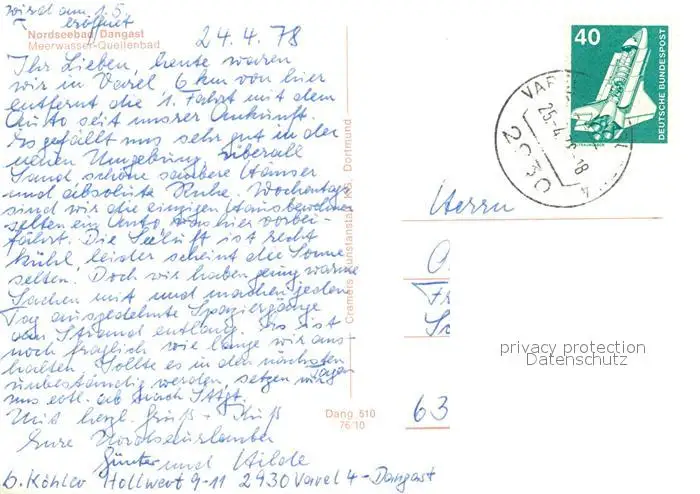 wird am 1.5.
eröffnet
Nordseebad Dangast
Meerwasser-Quellenbad
24.4.78
Ihr Lieben, heute waren
wir in Varel 6 km von hier
entfernt die 1. Fahrt mit dem
Auto seit unserer Ankunft.
Es gefällt uns sehr gut in der
neuen Umgebung, überall
Sand schöne saubere Häuser
und absolute Ruhe. Wochentags
sind wir die einzigen Hausbewohner
selten ein Auto, was hier vorbei-
fährt. Die Seeluft ist recht
kühl, leider scheint die Sonne
selten. Doch wir haben genug warme
Sachen mit und machen jeden
Tag ausgedehnte Spaziergänge
am Strand entlang. Es ist
noch fraglich wie lange wir aus-
halten. Sollte es in den nächsten
Tagen
unbeständig werden, setzen wir
uns evtl. ab nach Stgt.
Mit herzl. Gruß + Kuß
Eure Nordseeurlauber
Günter und Hilde
b. Köhler Hollwert 9-11 2930 Varel 4 - Dangast
Cramers Kunstanstalt KG, Dortmund
Dang 510
76/10
40
DEUTSCHE BUNDESPOST
25.-4.78-18
2930
4
Herrn
63
privacy protection
Datenschutz